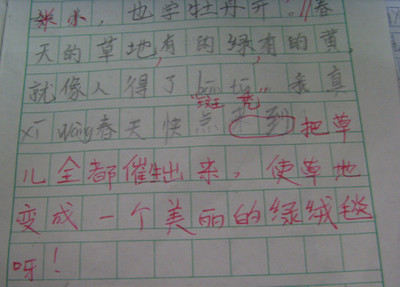 米小，也学牡丹开。"春
天的草地,有的绿,有的黄,
就像人得了bān tū，我真
斑秃
xī wàng春天快点来到把草
儿全都催生出来，使草地
变成一个美丽的绿绒毯
呀！